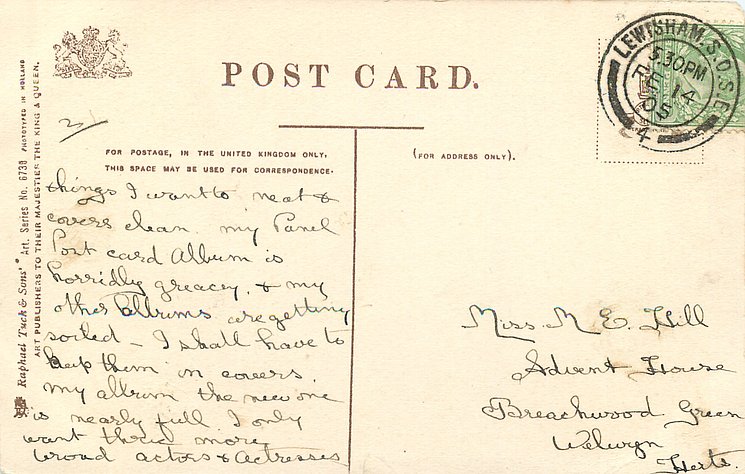 POST CARD.
LEWISHAM. S.O.S.E.
5.30PM
FE 14
05
4
Raphael Tuck & Sons' "Art" Series No. 6738 PHOTOTYPED IN HOLLAND
ART PUBLISHERS TO THEIR MAJESTIES THE KING & QUEEN.
FOR POSTAGE, IN THE UNITED KINGDOM ONLY,
THIS SPACE MAY BE USED FOR CORRESPONDENCE.
(FOR ADDRESS ONLY).
things I want to neat &
covers clean. my Panel
Post card Album is
horridly greacey, & my
other Albums are getting
soiled – I shall have to
keep them in covers.
my album the new one
is nearly full I only
want three more
broad actors & actresses
Miss. M. E. Hill
Advent House
Breachwood Green
Welwyn
Herts.